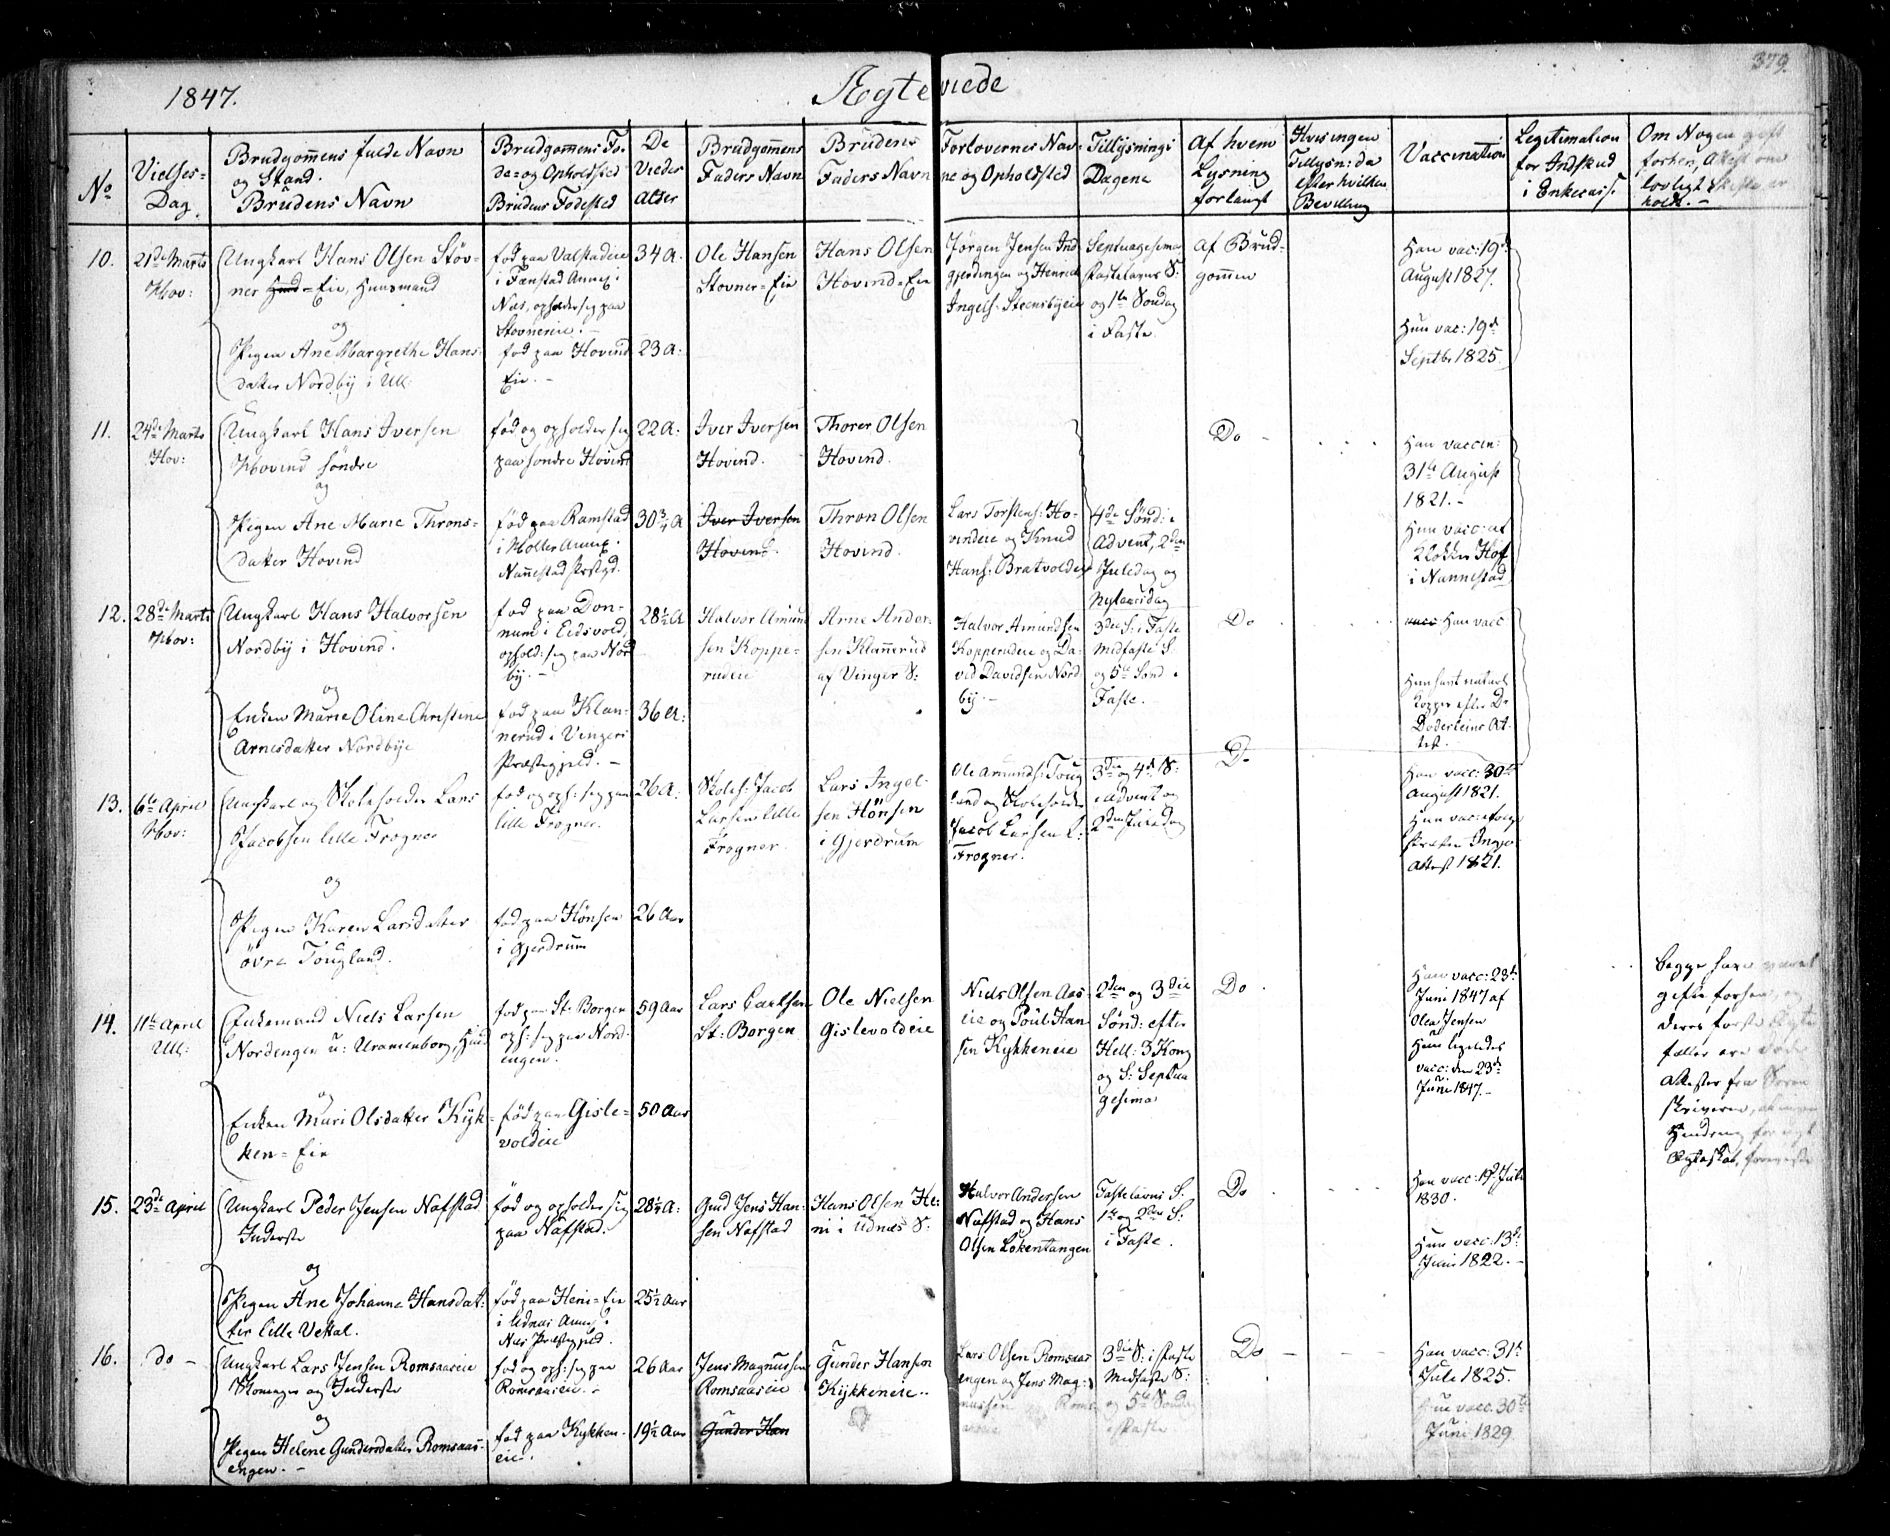 1847.
Ægteviede
379.
No
Vielses-
Dag.
Brudgom̅ens fulde Navn
og Stand.
Brudens Navn
Brudgom̅ens Fø-
de- og Opholdsted
Brudens Fødested
De
Vieders
Alder
Brudgom̅ens
Faders Navn
Brudens
Faders Navn
Forlovernes Nav-
ne og Opholdsted
Tillysnings
Dagene
Af hvem
Lysning
forlangt
Hvis ingen
Tillysn: da
efter hvilken
Bevilling
Vaccination
Legitimation
for Indskud
i Enkecasse
Om Nogen gift
forhen, Attest om
lovligt Skifte er
holdt. -
10.
21de Marts
Hov:
Ungkarl Hans Olsen Stöv-
ner Hund-Eie, Huusmand
og
Pigen Ane Margrethe Hans-
datter Nordby i Ull:
fød paa Valstadeie
i Fenstad Annex i
Næs, opholder sig paa
Stovnereie. -
fød paa Hovind
Eie. -
34 A:
23 A:
Ole Hansen
Stovner-Eie
Hans Olsen
Hovind-Eie
Jørgen Jensen Ind
gjerdingen og Henrik
Ingels: Steensbyeie
Septuagesima
Fastelavns S:
og 1ste Søndag
i Faste.
Af Brud-
gom̅en
Han vac: 19de
August 1827.
Hun vac: 19de
Septbr 1825.
11.
24de Marts
Hov:
Ungkarl Hans Iversen
Hovind söndre
og
Pigen Ane Marie Throns-
datter Hovind
fød og opholder sig
paa søndre Hovind
fød paa Ramstad
i Holter Annex.
Nannestad Præstgd.
22 A:
30¾ A
Iver Iversen
Hovind.
Iver Iversen
Hovind.
Thorer Olsen
Hovind.
Thron Olsen
Hovind.
Lars Torstens: Ho-
vindeie og Knud
Hans: Bratvoldeie
4de Sönd: i
Advent, 2den
Juledag og
Nytaarsdag
Do -
Han vaccin:
31te August
1821. -
Hun vacc: af
Klokker Hof
i Nannestad
12.
28de Marts
Hov:
Ungkarl Hans Halvorsen
Nordby i Hovind.
og
Enken Marie Oline Christine
Arnesdatter Nordbye
fød paa Don-
num i Eidsvold,
ophold: sig paa Nord
by. -
fød paa Klan-
nerud i Vinger
Præstegjeld. -
28½ A
36 A:
Halvor Amund
sen Koppe-
rudeie
Arne Ander-
sen Klannerud
af Vinger S:
Halvor Amundsen
Kopperudeie og Da-
vid Davidsen Nord
by. -
3die S: i Faste
Midfaste S.
og 5te Sønd i
Faste.
Do
vacc Han vacc
Hun havt naturl
Kopper efter Dr
Döderleins At-
test.
13.
6te April
Hov:
Ungkarl og Skoleholder Lars
Jacobsen lille Frogner
og
Pigen Karen Larsdatter
övre Tougland.
fød og oph: sig paa
lille Frogner.
fød paa Hönsen
i Gjerdrum
26 A:
26 Aar
Skoleh: Jacob
Larsen lille
Frogner.
Lars Ingel-
sen Hönsen
i Gjerdrum
Ole Amunds: Toug
land og Skoleholder
Jacob Larsen L:
Frogner.
3die og 4de S:
i Advent og
2den Juledag
Do
Han vacc: 30te
August 1821.
Hun vac: ifølge
Attest 1821.
14.
11te April
Ull:
Enkemand Niels Larsen
Nordengen u: Uranienborg, Huusd
og
Enken Mari Olsdatter Kyk-
ken-Eie
fød paa St: Borgen
oph: sig paa Nord-
engen.
fød paa Gisle-
voldeie
59 Aar
50 Aar
Lars Carlsen
St: Borgen
Ole Nielsen
Gislevoldeie
Niels Olsen Aas-
eie og Poul Han
sen Kykkeneie
2den og 3die
Sønd: efter
Hell: 3 Kong
og S: Septua
gesima
Do
Han vacc: 23de
Juni 1847 af
Olea Jensen
Hun ligeledes
vacc: den 23de
Juni 1847. -
begge have været
gifte forhen, og
deres første Ægte
fæller ere døde
Attester fra Soren
skriveren,
15.
23de April
Ungkarl Peder Jensen Nafstad
Inderste
og
Pigen Ane Johanne Hansdat-
ter lille Vettal.
fød og opholder sig
paa Nafstad.
fød paa Heni-Eie
i Udnæs Annex i
Næs Præstegjeld.
28½ A:
25½ Aar
Gmd Jens Han-
sen Nafstad
Hans Olsen He-
ni i Udnæs S:
Halvor Andersen
Nafstad og Hans
Olsen Løkentangen
Fastelavns S.
1ste og 2den S:
i Faste.
Do
Han vacc: 19de Juli
1830.
Hun vacc: 13de
Juni 1822. -
16.
do -
Ungkarl Lars Jensen Romsaaseie
Skomager og Inderste
og
Pigen Helene Gundersdatter Romsaas-
engen. -
fød og oph: sig paa
Romsaaseie. -
fød paa Kykken-
eie.
26 Aar
19½ Aar
Jens Magnussen
Romsaaseie
Gunder Han
Gunder Hansen
Kykkeneie.
Lars Olsen Romsaas
engen og Jens Mag-
nussen Roms
aaseie
3die S: i Faste
Midfaste S:
og 5te Søndag
i Faste
Do -
Han vacc: 31te
Juli 1825.
Hun vacc: 30te
Juni 1829.